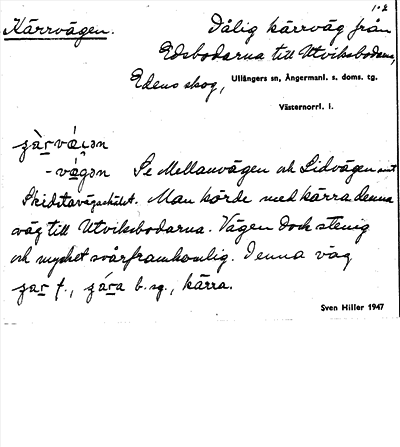 Kärrvägen.
Dålig kärrväg från
Edsbodarna till Utviksbodarna,
Edens skog, Ullångers sn, Ångermanl. s. doms. tg.
Västernorrl. l.
Se Mellanvägen och Lidvägen samt
Man körde med kärra denna
väg till Utviksbodarna. Vägen dock stenig
och mycket svårframkomlig. Denna väg
f., b. sg., kärra.
Sven Hiller 1947